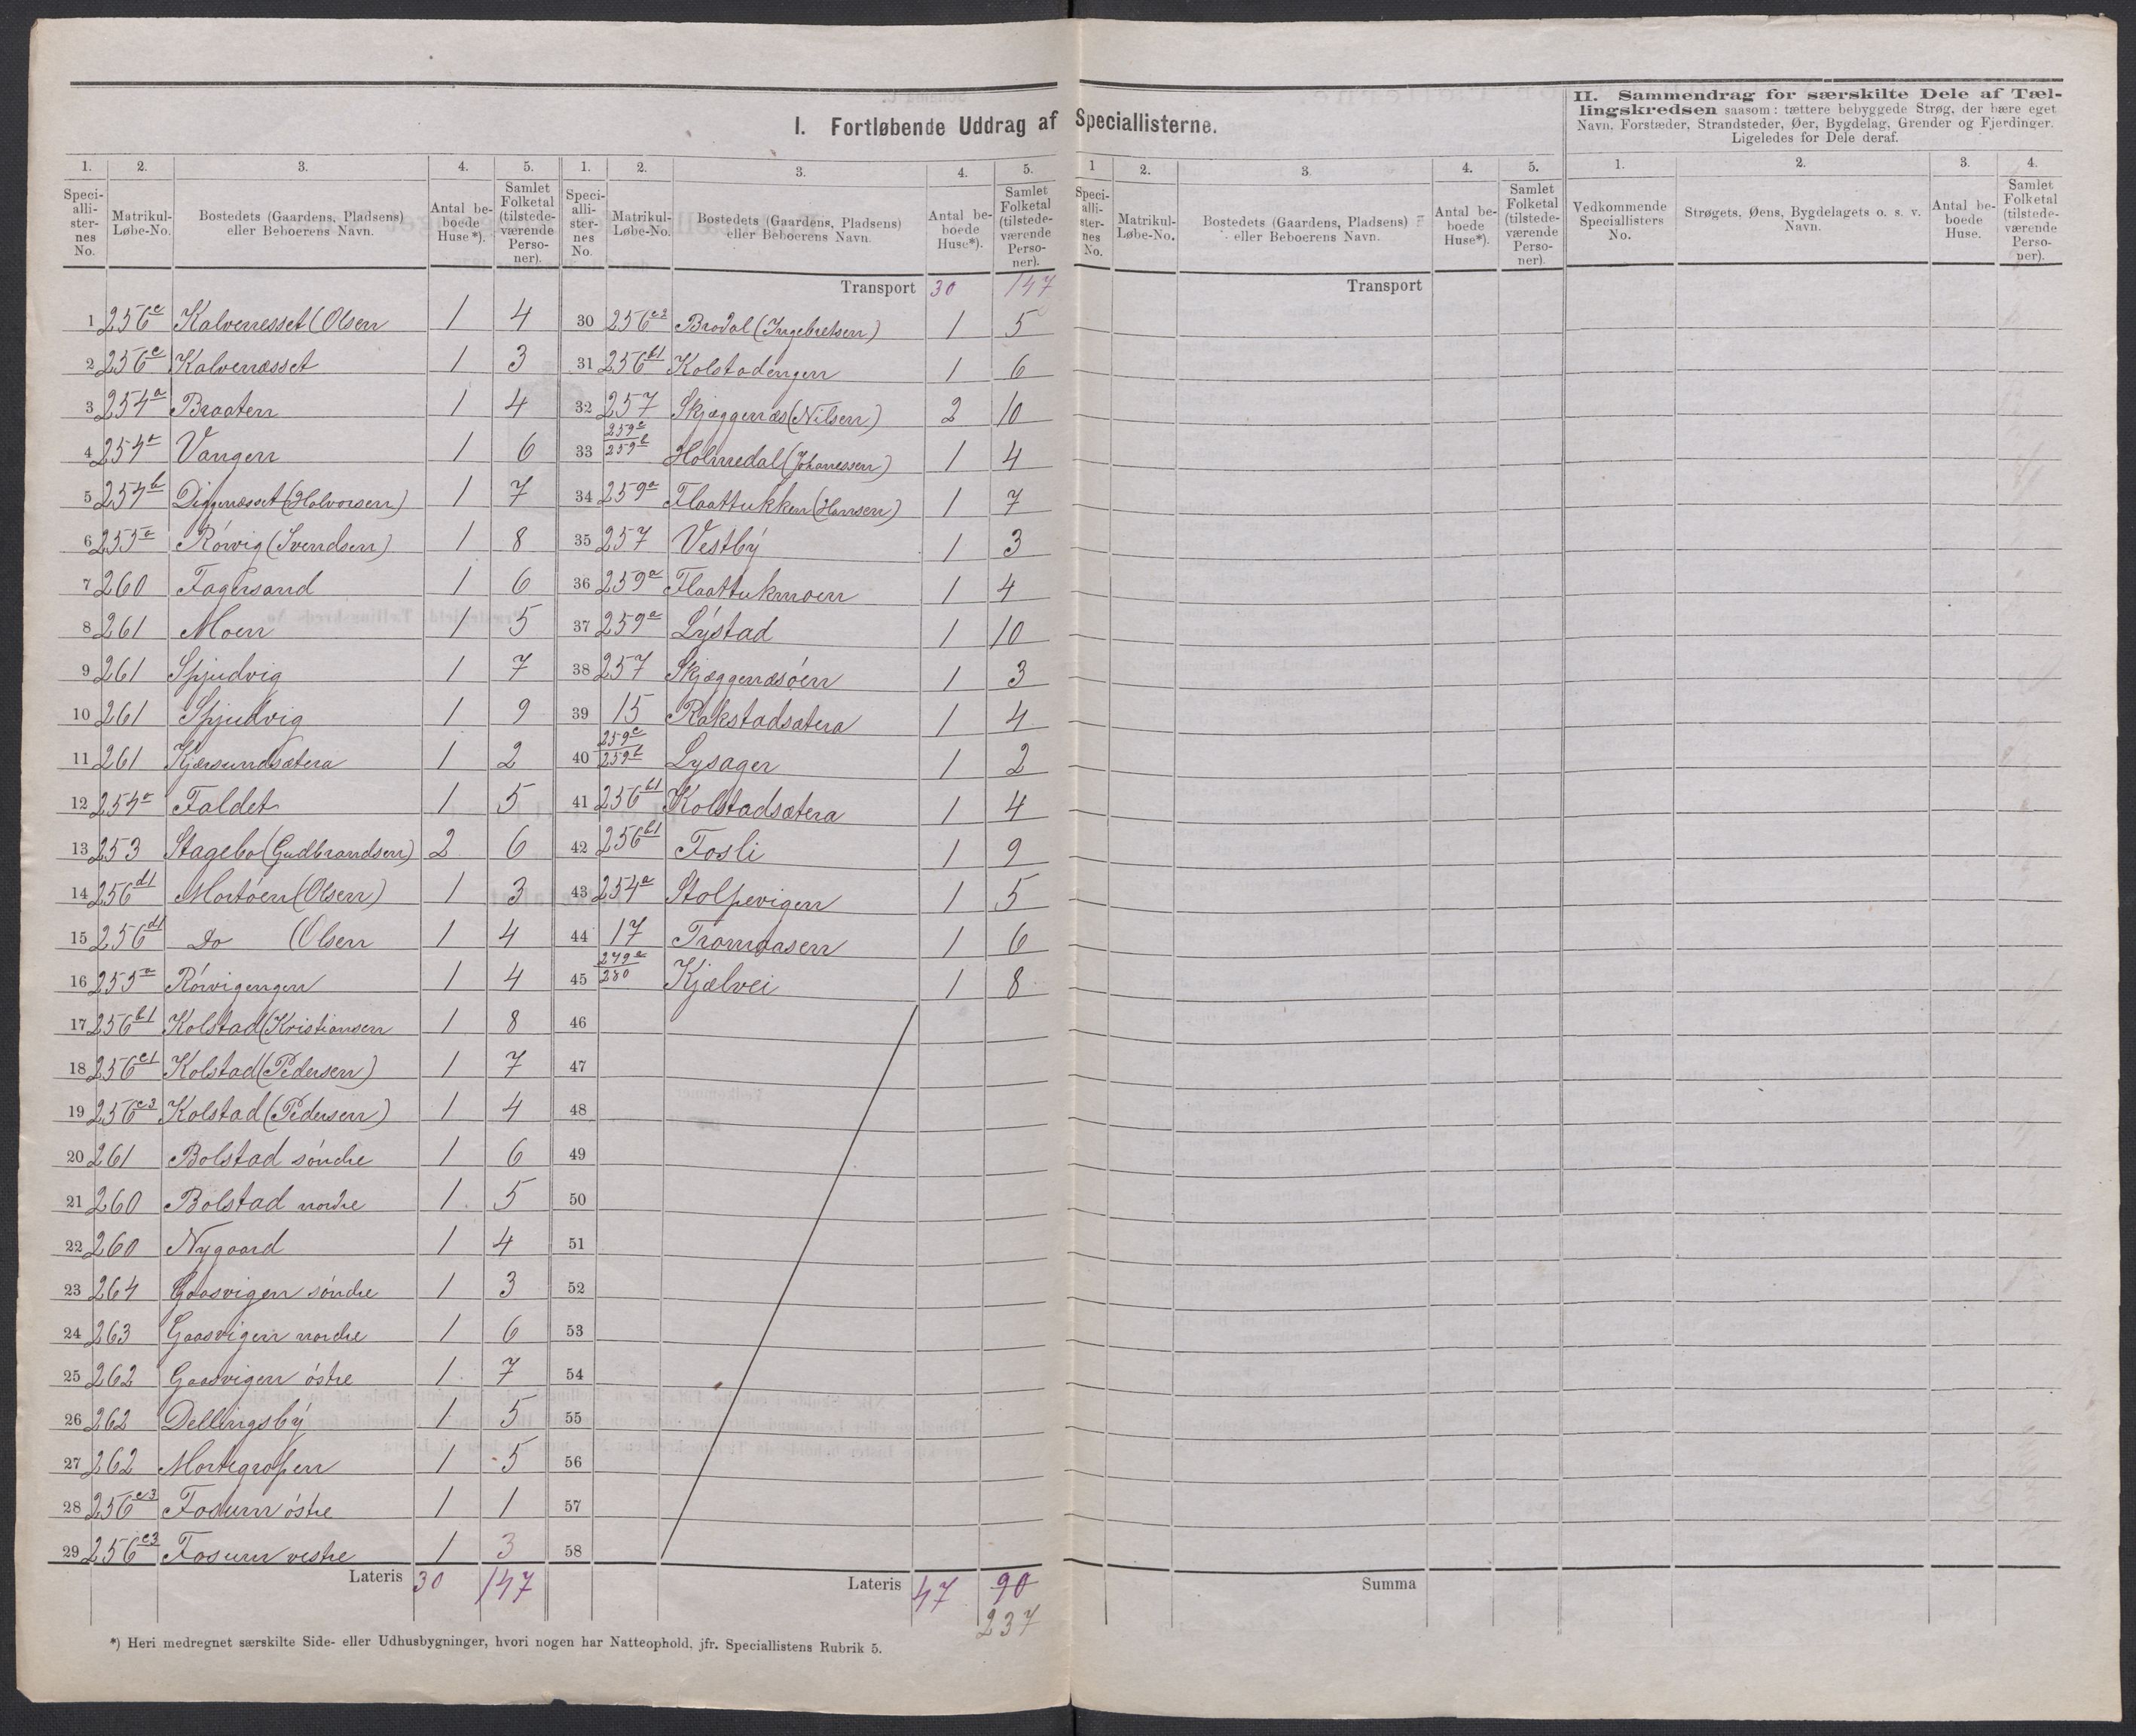 I. Fortløbende Uddrag af Speciallisterne.
II. Sammendrag for særskilte Dele af Tællingskredsen saasom: tættere bebyggede Strøg, der bære eget Navn, Forstæder, Strandsteder, Øer, Bygdelag, Grender og Fjerdinger. Ligeledes for Dele deraf.
1. 2. 3. 4. 5.
Speciallisternes No. Matrikul-Løbe-No. Bostedets (Gaardens, Pladsens) eller Beboerens Navn. Antal beboede Huse*). Samlet Folketal (tilstedeværende Personer).
1 256e Kalvenesset (Olsen 1 4
2 256e Kalvenæsset 1 3
3 254a Braaten 1 4
4 254a Vangen 1 6
5 254b Diggenæsset (Halvorsen) 1 7
6 255a Rörvig (Svendsen) 1 8
7 260 Fagersand 1 6
8 261 Moen 1 5
9 261 Spjudvig 1 7
10 261 Spjudvig 1 9
11 261 Kjærsundsætera 1 2
12 254a Faldet 1 5
13 253 Stagebo (Gudbrandsen) 2 6
14 256d1 Mortöen (Olsen) 1 3
15 256d1 Do (Olsen 1 4
16 255a Rörvigengen 1 4
17 256b1 Kolstad (Kristiansen 1 8
18 256c1 Kolstad (Pedersen) 1 7
19 256c3 Kolstad (Pedersen) 1 4
20 261 Bolstad söndre 1 6
21 260 Bolstad nordre 1 5
22 260 Nygaard 1 4
23 264 Gaasvigen söndre 1 3
24 263 Gaasvigen nordre 1 6
25 262 Gaasvigen östre 1 7
26 262 Dellingsbý 1 5
27 262 Mortegrafsen 1 5
28 256c3 Fosum östre 1 1
29 256c3 Fosum vestre 1 3
Lateris 30 147
1. 2. 3. 4. 5.
Speciallisternes No. Matrikul-Løbe-No. Bostedets (Gaardens, Pladsens) eller Beboerens Navn. Antal beboede Huse*). Samlet Folketal (tilstedeværende Personer).
Transport 30 147
30 256c3 Brodal (Ingebretsen) 1 5
31 256b1 Kolstadengen 1 6
32 257 Skjæggenæs (Nilsen) 2 10
33 259c 259b Holmedal (Johanessen) 1 4
34 259a Flaattukken (Hansen) 1 7
35 257 Vestbý 1 3
36 259a Flaattukmoen 1 4
37 259a Lýstad 1 10
38 257 Skjæggenæsöen 1 3
39 15 Rakstadsætera 1 4
40 259c 259b Lysager 1 2
41 256b1 Kolstadsætera 1 4
42 256b1 Fosli 1 9
43 254a Stolpevigen 1 5
44 17 Tromaasen 1 6
45 279a 280 Kjælvei 1 8
46
47
48
49
50
51
52
53
54
55
56
57
58
Lateris 47 90
237
1 2. 3. 4. 5.
Speciallisternes No. Matrikul-Løbe-No. Bostedets (Gaardens, Pladsens) eller Beboerens Navn. Antal beboede Huse*). Samlet Folketal (tilstedeværende Personer).
Transport
Summa
1. 2. 3. 4.
Vedkommende Speciallisters No. Strøgets, Øens, Bygdelagets o. s. v. Navn. Antal beboede Huse. Samlet Folketal (tilstedeværende Personer).
*) Heri medregnet særskilte Side- eller Udhusbygninger, hvori nogen har Natteophold, jfr. Speciallistens Rubrik 5.